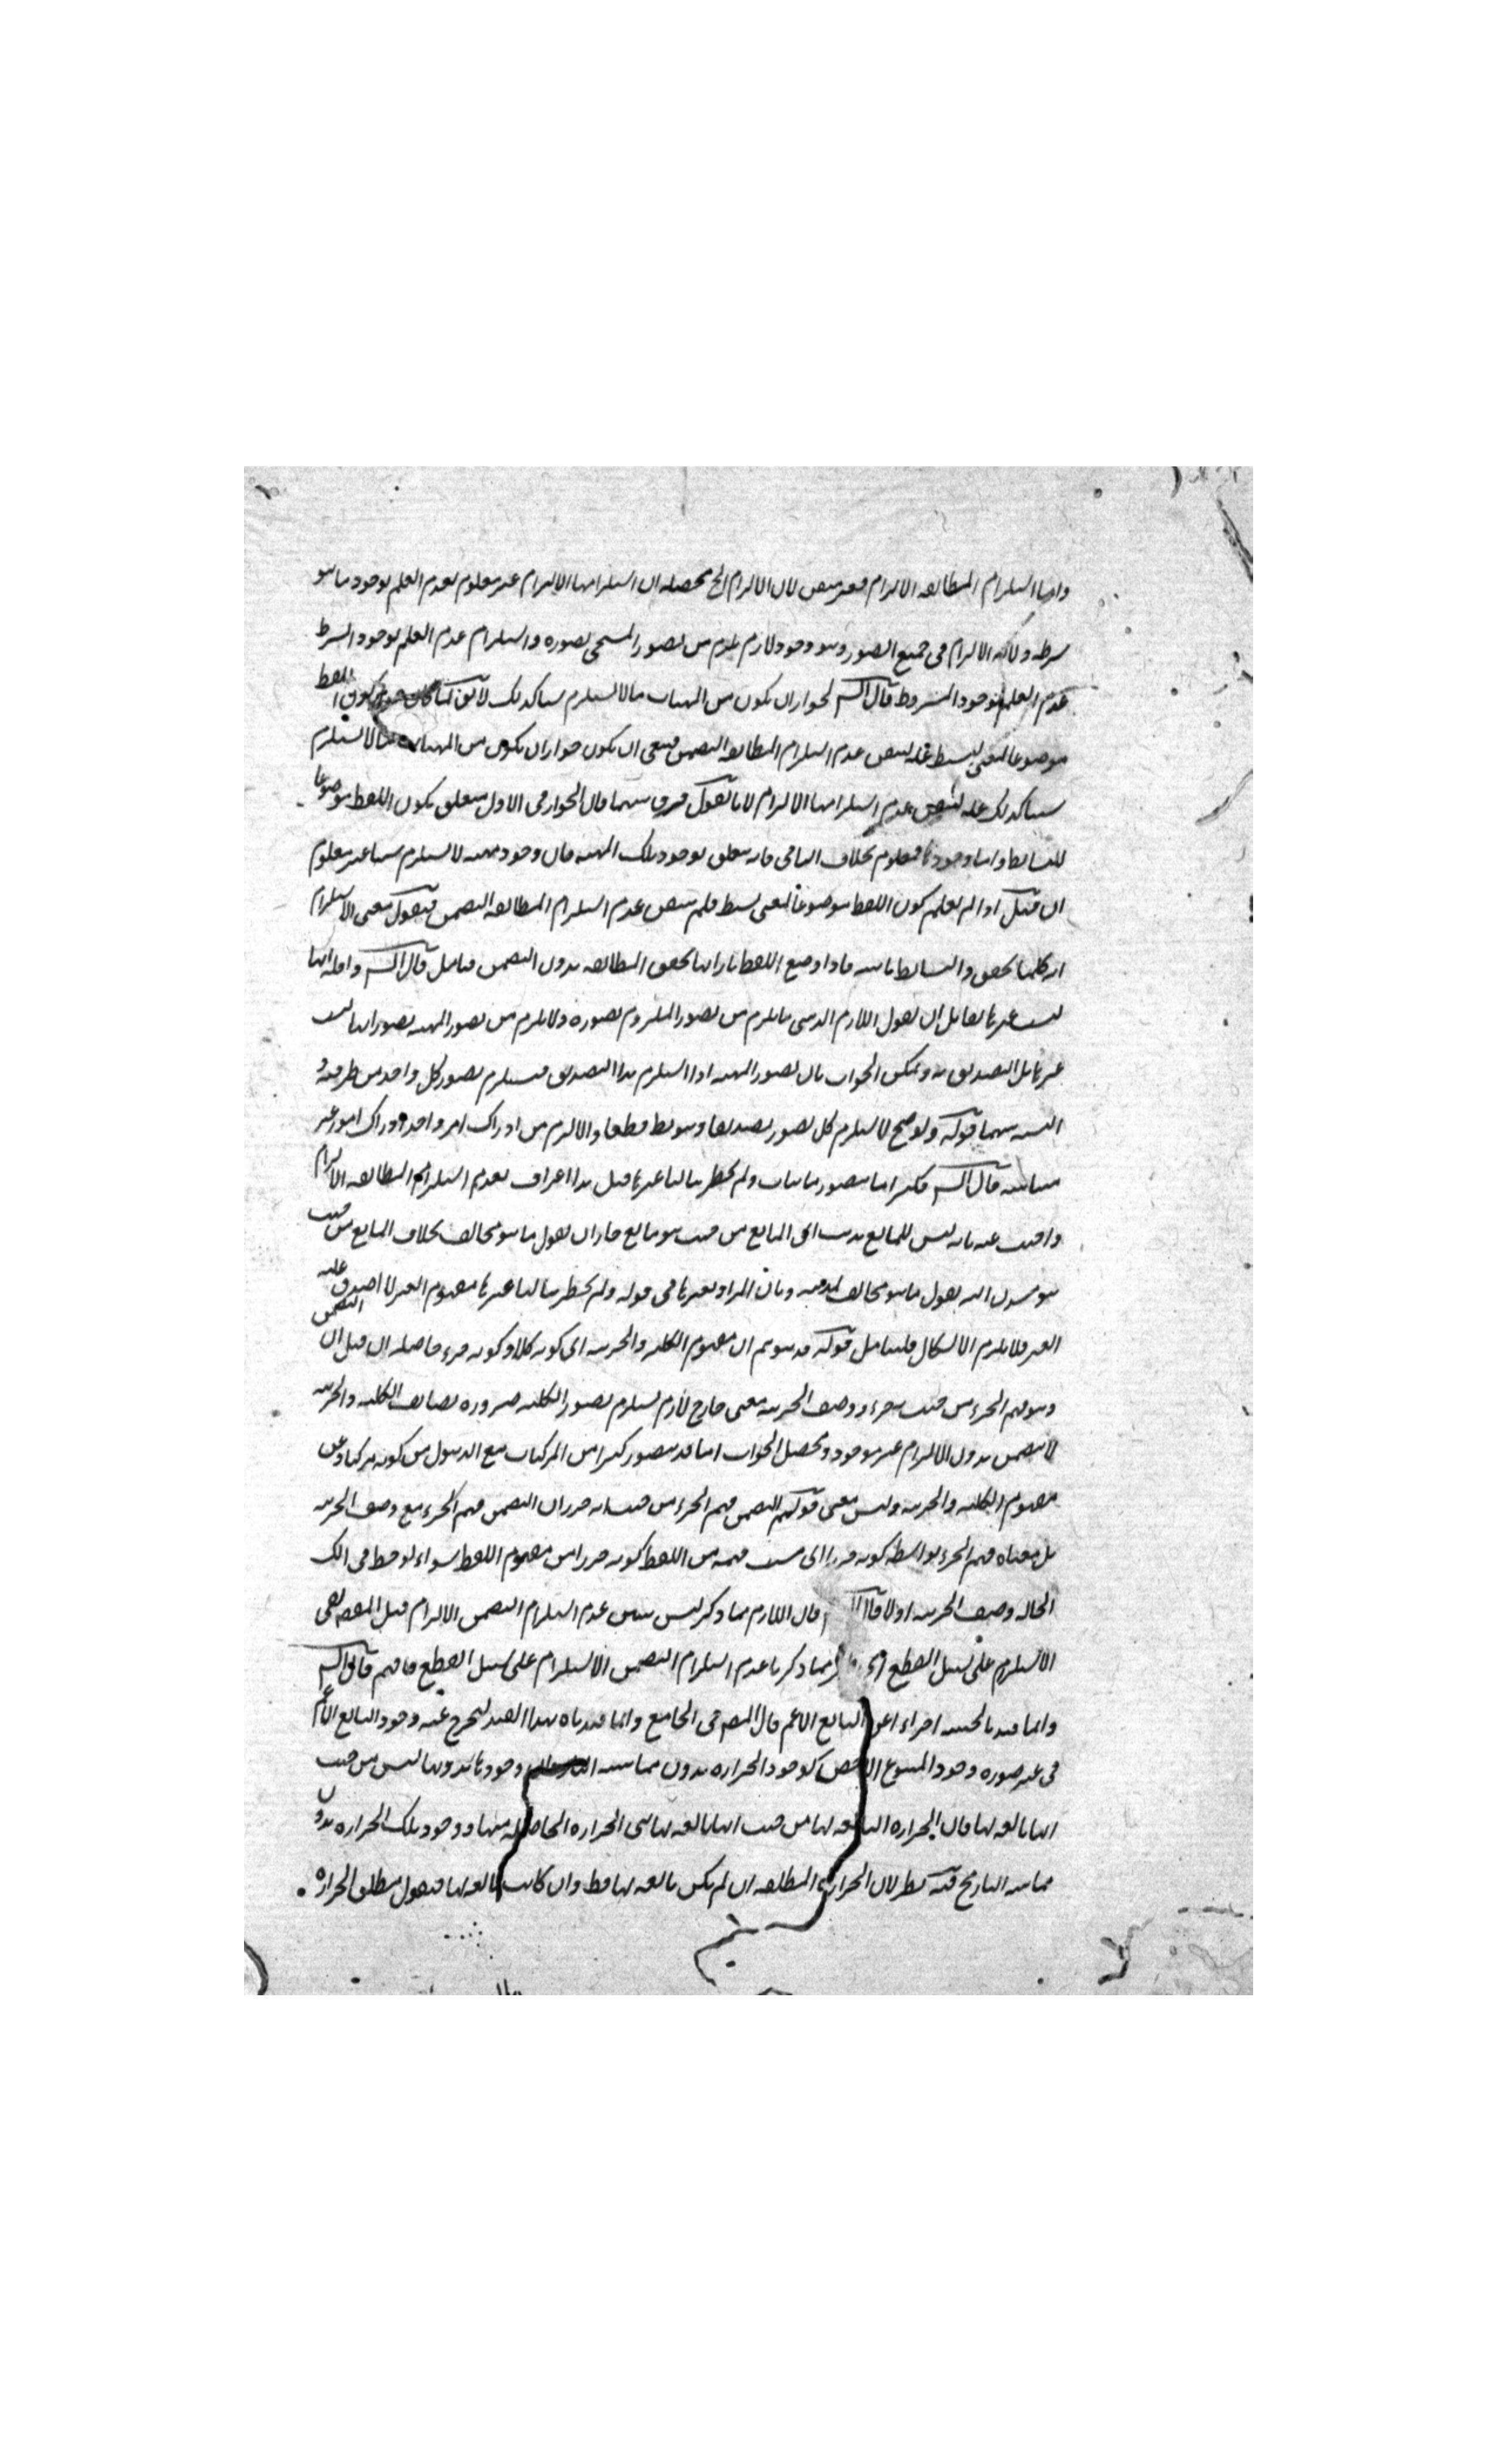 واما استلزام المطابقه الالتزام فغير متيقن لان الالتزام الخ محصله ان استلزامها الالتزام غير معلوم لعدم العلم بوجود ما هو
شرطه دلاله الالتزام فى جميع الصور وهو وجود لازم يلزم من تصور المسمى تصوره واستلزام عدم العلم بوجود الشرط
عدم العلم بوجود المشروط قال الش لجواز ان يكون من المهيات ما لا يستلزم شيا كذلك لا يقال كما كان جواز كون اللفظ
موضوعا لمعنى بسيط عله لتيقن عدم استلزام المطابقه التضمن فينبغى ان يكون جواز ان يكون من المهيات ما لا يستلزم
شيا كذلك عله لتيقن عدم استلزامها الالتزام لانا نقول فرق بينهما فان الجواز فى الاول متعلق بكون اللفظ موضوعا
للبسائط واما وجودها فمعلوم بخلاف الثانى فانه متعلق بوجود تلك المهيه فان وجود مهيه لا يستلزم شيا غير معلوم
ان قيل اذا لم يعلم كون اللفظ موضوعا لمعنى بسيط فلم يتيقن عدم استلزام المطابقه التضمن فنقول معنى الاستلزام
انه كلما تحقق والبسائط ثابته فاذا وضع اللفظ بازائها تحقق المطابقه بدون التضمن فتامل قال الش واقله انها
ليست غيرها لقائل ان يقول اللازم الذهنى ما يلزم من تصور الملزوم تصوره ولا يلزم من تصور المهيه تصور انها ليست
غيرها بل التصديق به ويمكن الجواب بان تصور المهيه اذا استلزم هذا التصديق فيستلزم تصور كل واحد من طرفيه و
النسبه بينهما قوله ولو صح لاستلزم كل تصور تصديقا وهو بط قطعا والا لزم من ادراك امر واحد ادراك امور غير
متناهيه قال الش فكثيرا ما نتصور ماهيات ولم يخطر ببالنا غيرها قيل هذا اعتراف بعدم استلزام المطابقه الالتزام
واجيب عنه بانه ليس للمانع مذهب اى المانع من حيث هو مانع جاز ان يقول ما هو مخالف بخلاف المانع من حيث
هو مستدل انه يقول ما هو مخالف لمذهبه وبان المراد بغيرها فى قوله ولم يخطر ببالنا غيرها مفهوم الغير لا ما صدق عليه
الغير فلا يلزم الاشكال فليتامل قوله قد يتوهم ان مفهوم الكليه والجزئيه اى كونه كلا وكونه جزء حاصله ان قيل ان التضمن
وهو فهم الجزء من حيث هو جزء ووصف الجزئيه معنى خارج لازم يستلزم تصور الكليه ضروره تضايف الكليه والجزئيه
لا تضمن بدون الالتزام غير موجود ومحصل الجواب انا قد نتصور كثيرا من المركبات مع الذهول من كونه مركبا وعن
مفهوم الكليه والجزئيه وليس معنى قولهم التضمن فهم الجزء من حيث انه جزء ان التضمن فهم الجزء مع وصف الجزئيه
بل معناه فهم الجزء بواسطه كونه جزء اى سبب فهمه من اللفظ كونه جزءا من مفهوم اللفظ سواء لوحظ فى تلك
الحاله وصف الجزئيه اولا قال فان اللازم مما ذكر ليس تيقن عدم استلزام التضمن الالتزام قيل المقصه نفى
الاستلزام على سبيل القطع مما ذكرنا عدم استلزام التضمن الالتزام على سبيل القطع فافهم قال الش
وانما قيد بالحيثيه احترازا عن التابع الاعم قال المص فى الجامع وانما قيدناه بهذا القيد ليخرج عنه وجود التابع الاعم
فى غير صوره وجود المتبوع الاخص كوجود الحراره بدون مماسه النار فان وجودها بدونها ليس من حيث
انها تابعه لها فان الحراره التابعه لها من حيث انها تابعه لها هى الحراره الحاصله منها ووجود تلك الحراره بدون
مماسه النار مح فيه نظر لان الحراره المطلقه ان لم تكن تابعه لها فظ وان كانت تابعه لها فنقول مطلق الحراره